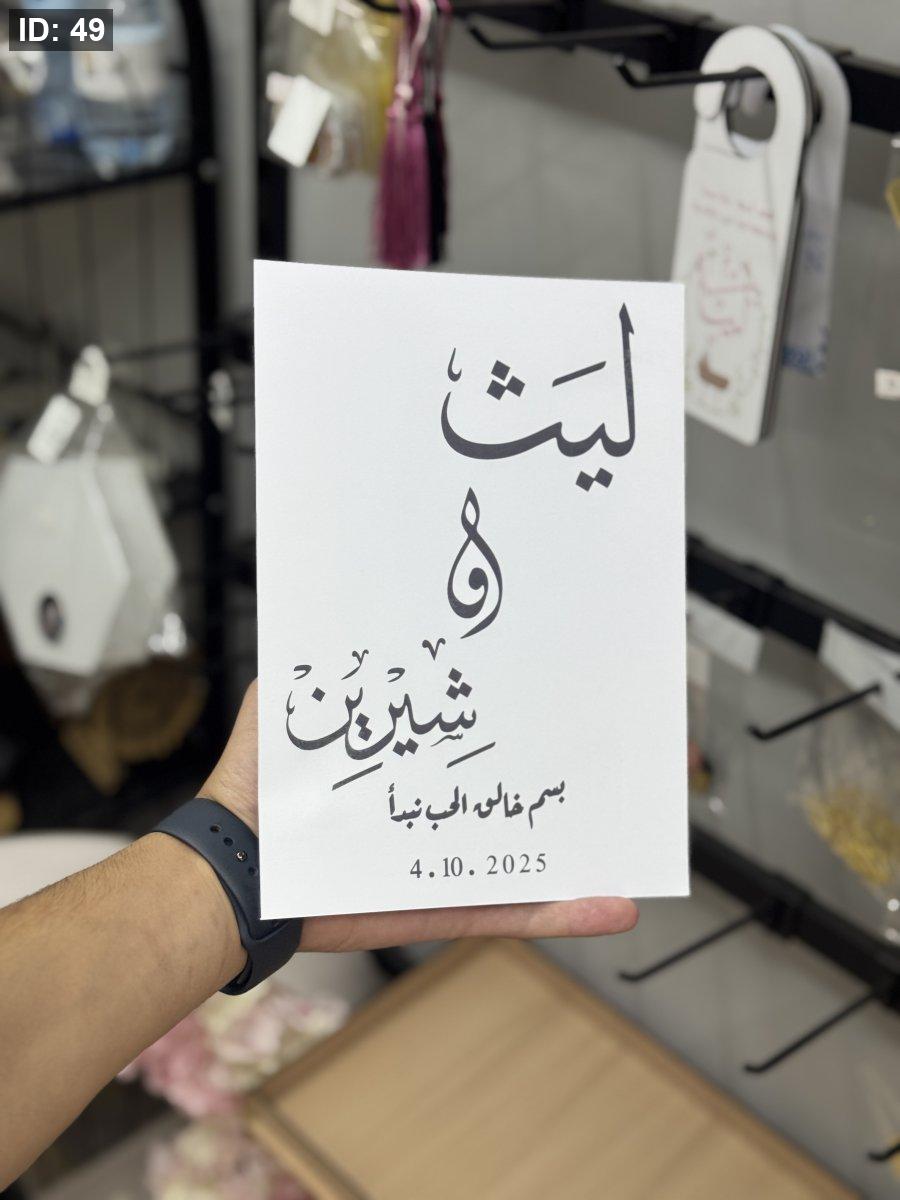 ID: 49
لَيث
و
شِيْرِيْنْ
بسم خالق الحب نبدأ
4.10.2025